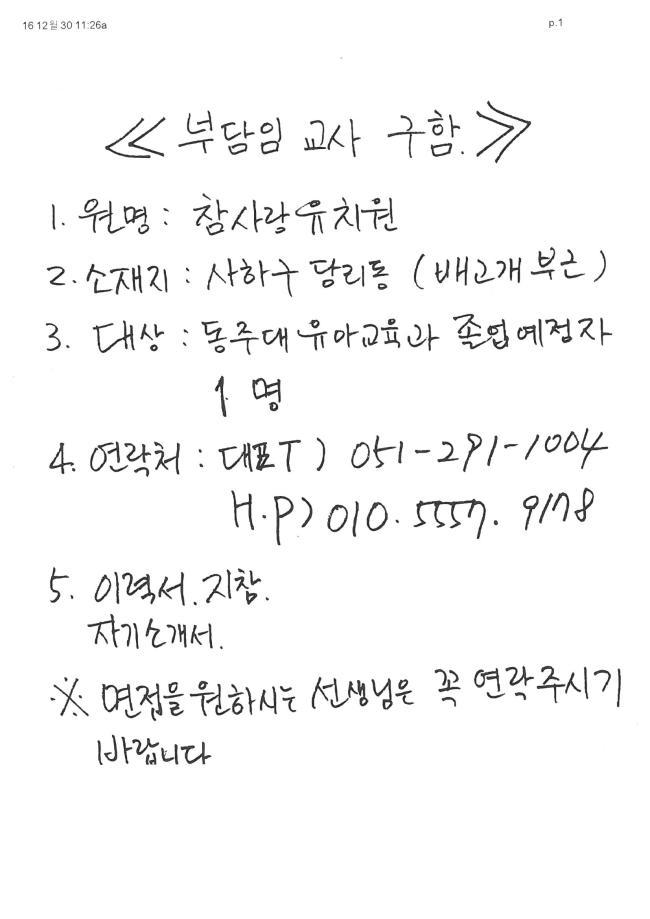 16 12월 30 11:26a
p.1
≪ 부담임 교사 구함. ≫
1. 원명 : 참사랑유치원
2. 소재지 : 사하구 당리동 (배고개부근)
3. 대상 : 동주대 유아교육과 졸업예정자
1 명
4. 연락처 : 대표T ) 051-291-1004
H.P) 010. 5557. 9178
5. 이력서. 지참.
자기소개서.
※ 면접을 원하시는 선생님은 꼭 연락주시기
바랍니다